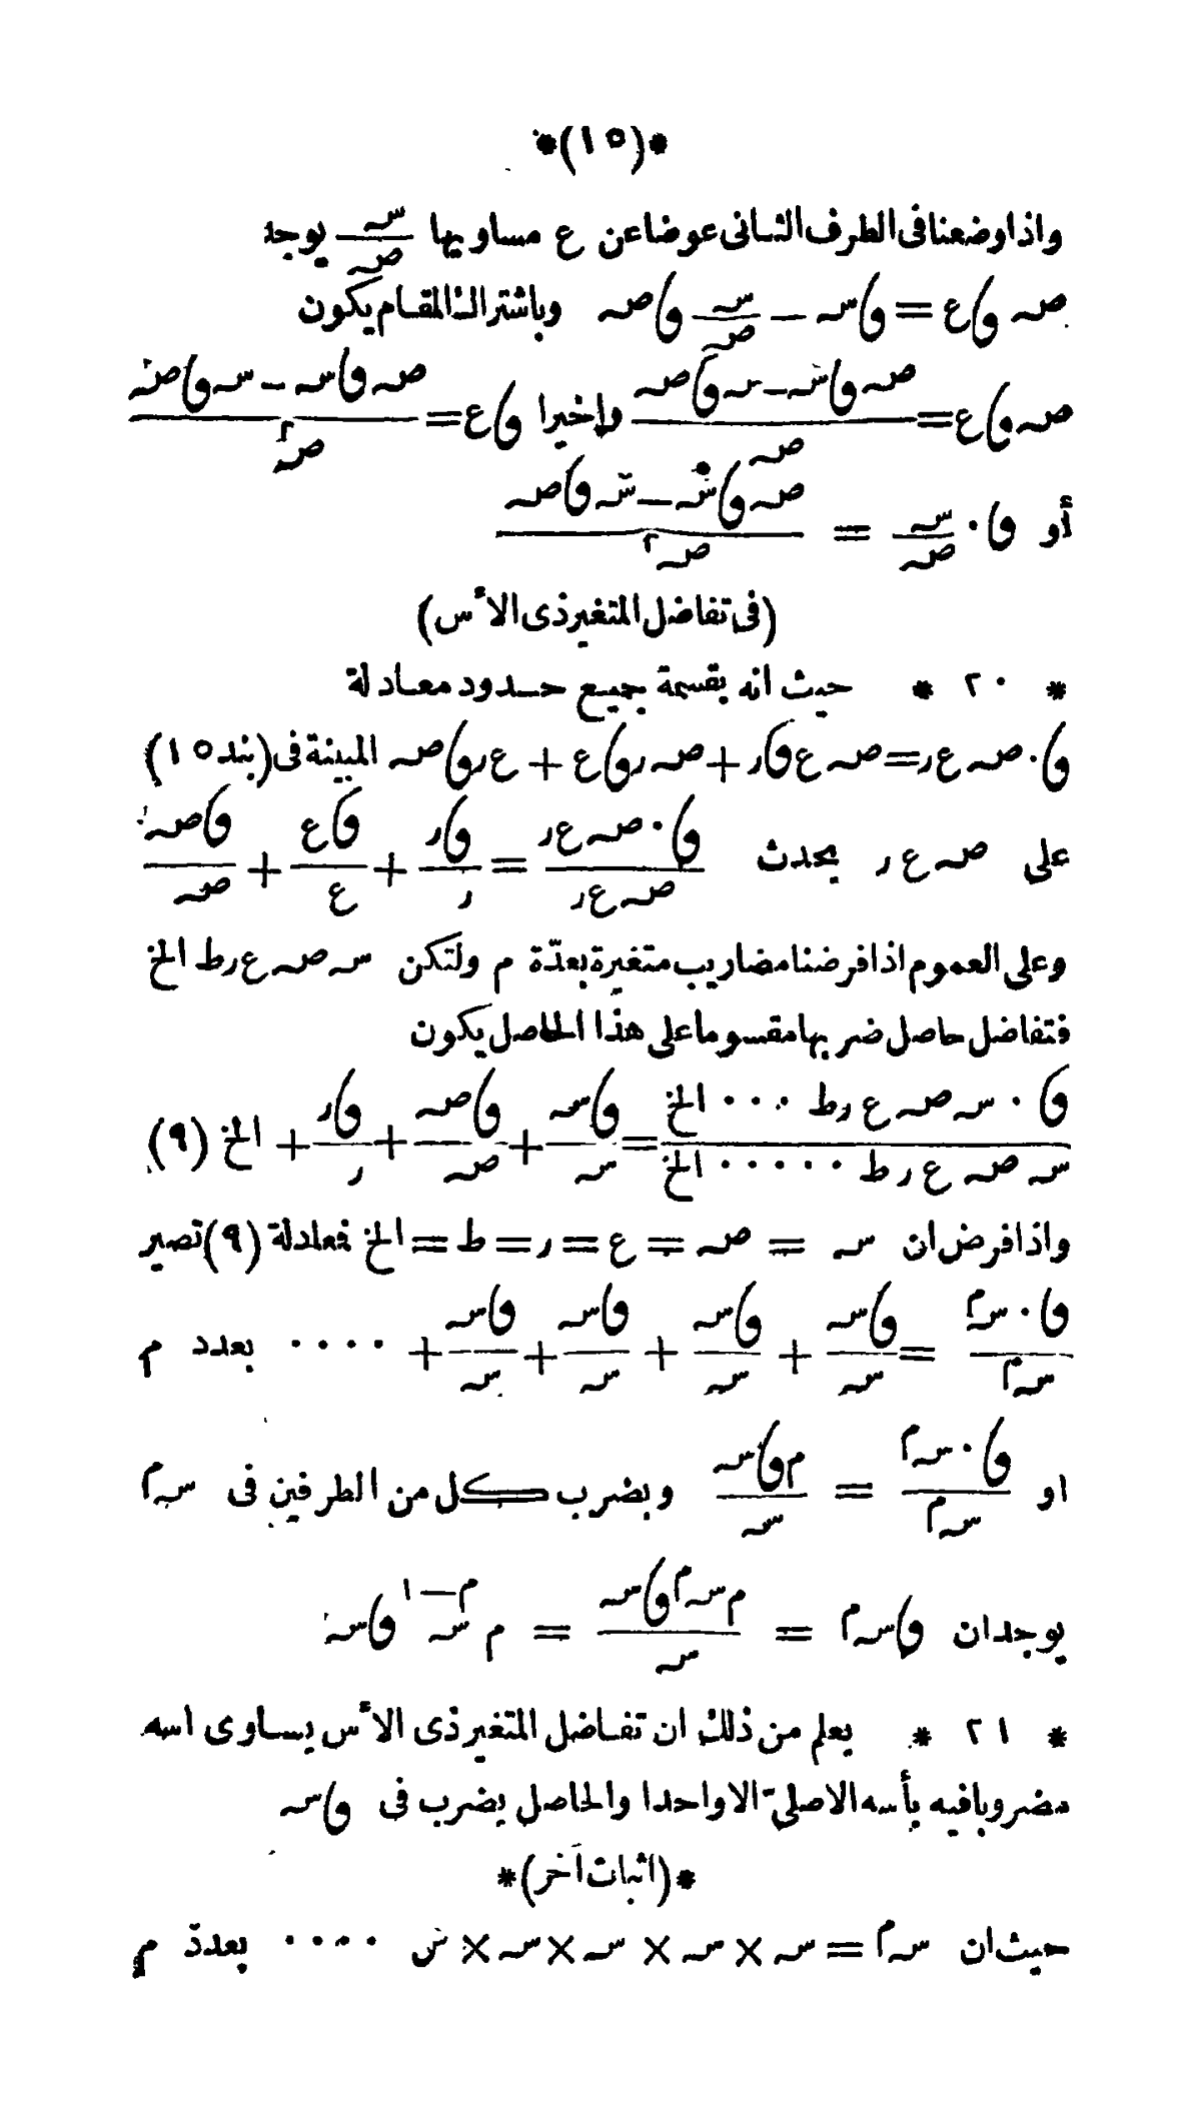 *(١٥)*
واذا وضعنا فى الطرف الثانى عوضا عن ع مساويها سـ/صـ يوجد
صـ ﻭ\ع = ﻭ\سـ − سـ/صـ ﻭ\صـ وباشتراك المقام يكون
صـ ﻭ\ع = (صـ ﻭ\سـ − سـ ﻭ\صـ)/صـ واخيرا ﻭ\ع = (صـ ﻭ\سـ − سـ ﻭ\صـ)/صـ٢
أو ﻭ\ · سـ/صـ = (صـ ﻭ\سـ − سـ ﻭ\صـ)/صـ٢
(فى تفاضل المتغير ذى الأس)
* ٢٠ * حيث انه بقسمة جميع حدود معادلة
ﻭ\ · صـ ع ر = صـ ع ﻭ\ر + صـ ر ﻭ\ع + ع ر ﻭ\صـ المبينة فى (بند ١٥)
على صـ ع ر يحدث (ﻭ\ · صـ ع ر)/(صـ ع ر) = ﻭ\ر/ر + ﻭ\ع/ع + ﻭ\صـ/صـ
وعلى العموم اذا فرضنا مضاريب متغيرة بعدّة م ولتكن سـ صـ ع ر ط الخ
فتفاضل حاصل ضربها مقسوما على هذا الحاصل يكون
(ﻭ\ · سـ صـ ع ر ط ··· الخ)/(سـ صـ ع ر ط ····· الخ) = ﻭ\سـ/سـ + ﻭ\صـ/صـ + ﻭ\ر/ر + الخ (٩)
واذا فرض ان سـ = صـ = ع = ر = ط = الخ فمعادلة (٩) تصير
(ﻭ\ · سـم)/سـم = ﻭ\سـ/سـ + ﻭ\سـ/سـ + ﻭ\سـ/سـ + ﻭ\سـ/سـ + ···· بعدد م
او (ﻭ\ · سـم)/سـم = م ﻭ\سـ/سـ وبضرب كل من الطرفين فى سـم
يوجد ان ﻭ\سـم = م سـم ﻭ\سـ/سـ = م سـم−١ ﻭ\سـ
* ٢١ * يعلم من ذلك ان تفاضل المتغير ذى الأس يساوى اسه
مضروبا فيه بأسه الاصلىّ الا واحدا والحاصل يضرب فى ﻭ\سـ
*(اثبات آخر)*
حيث ان سـم = سـ × سـ × سـ × سـ × س ···· بعدد م